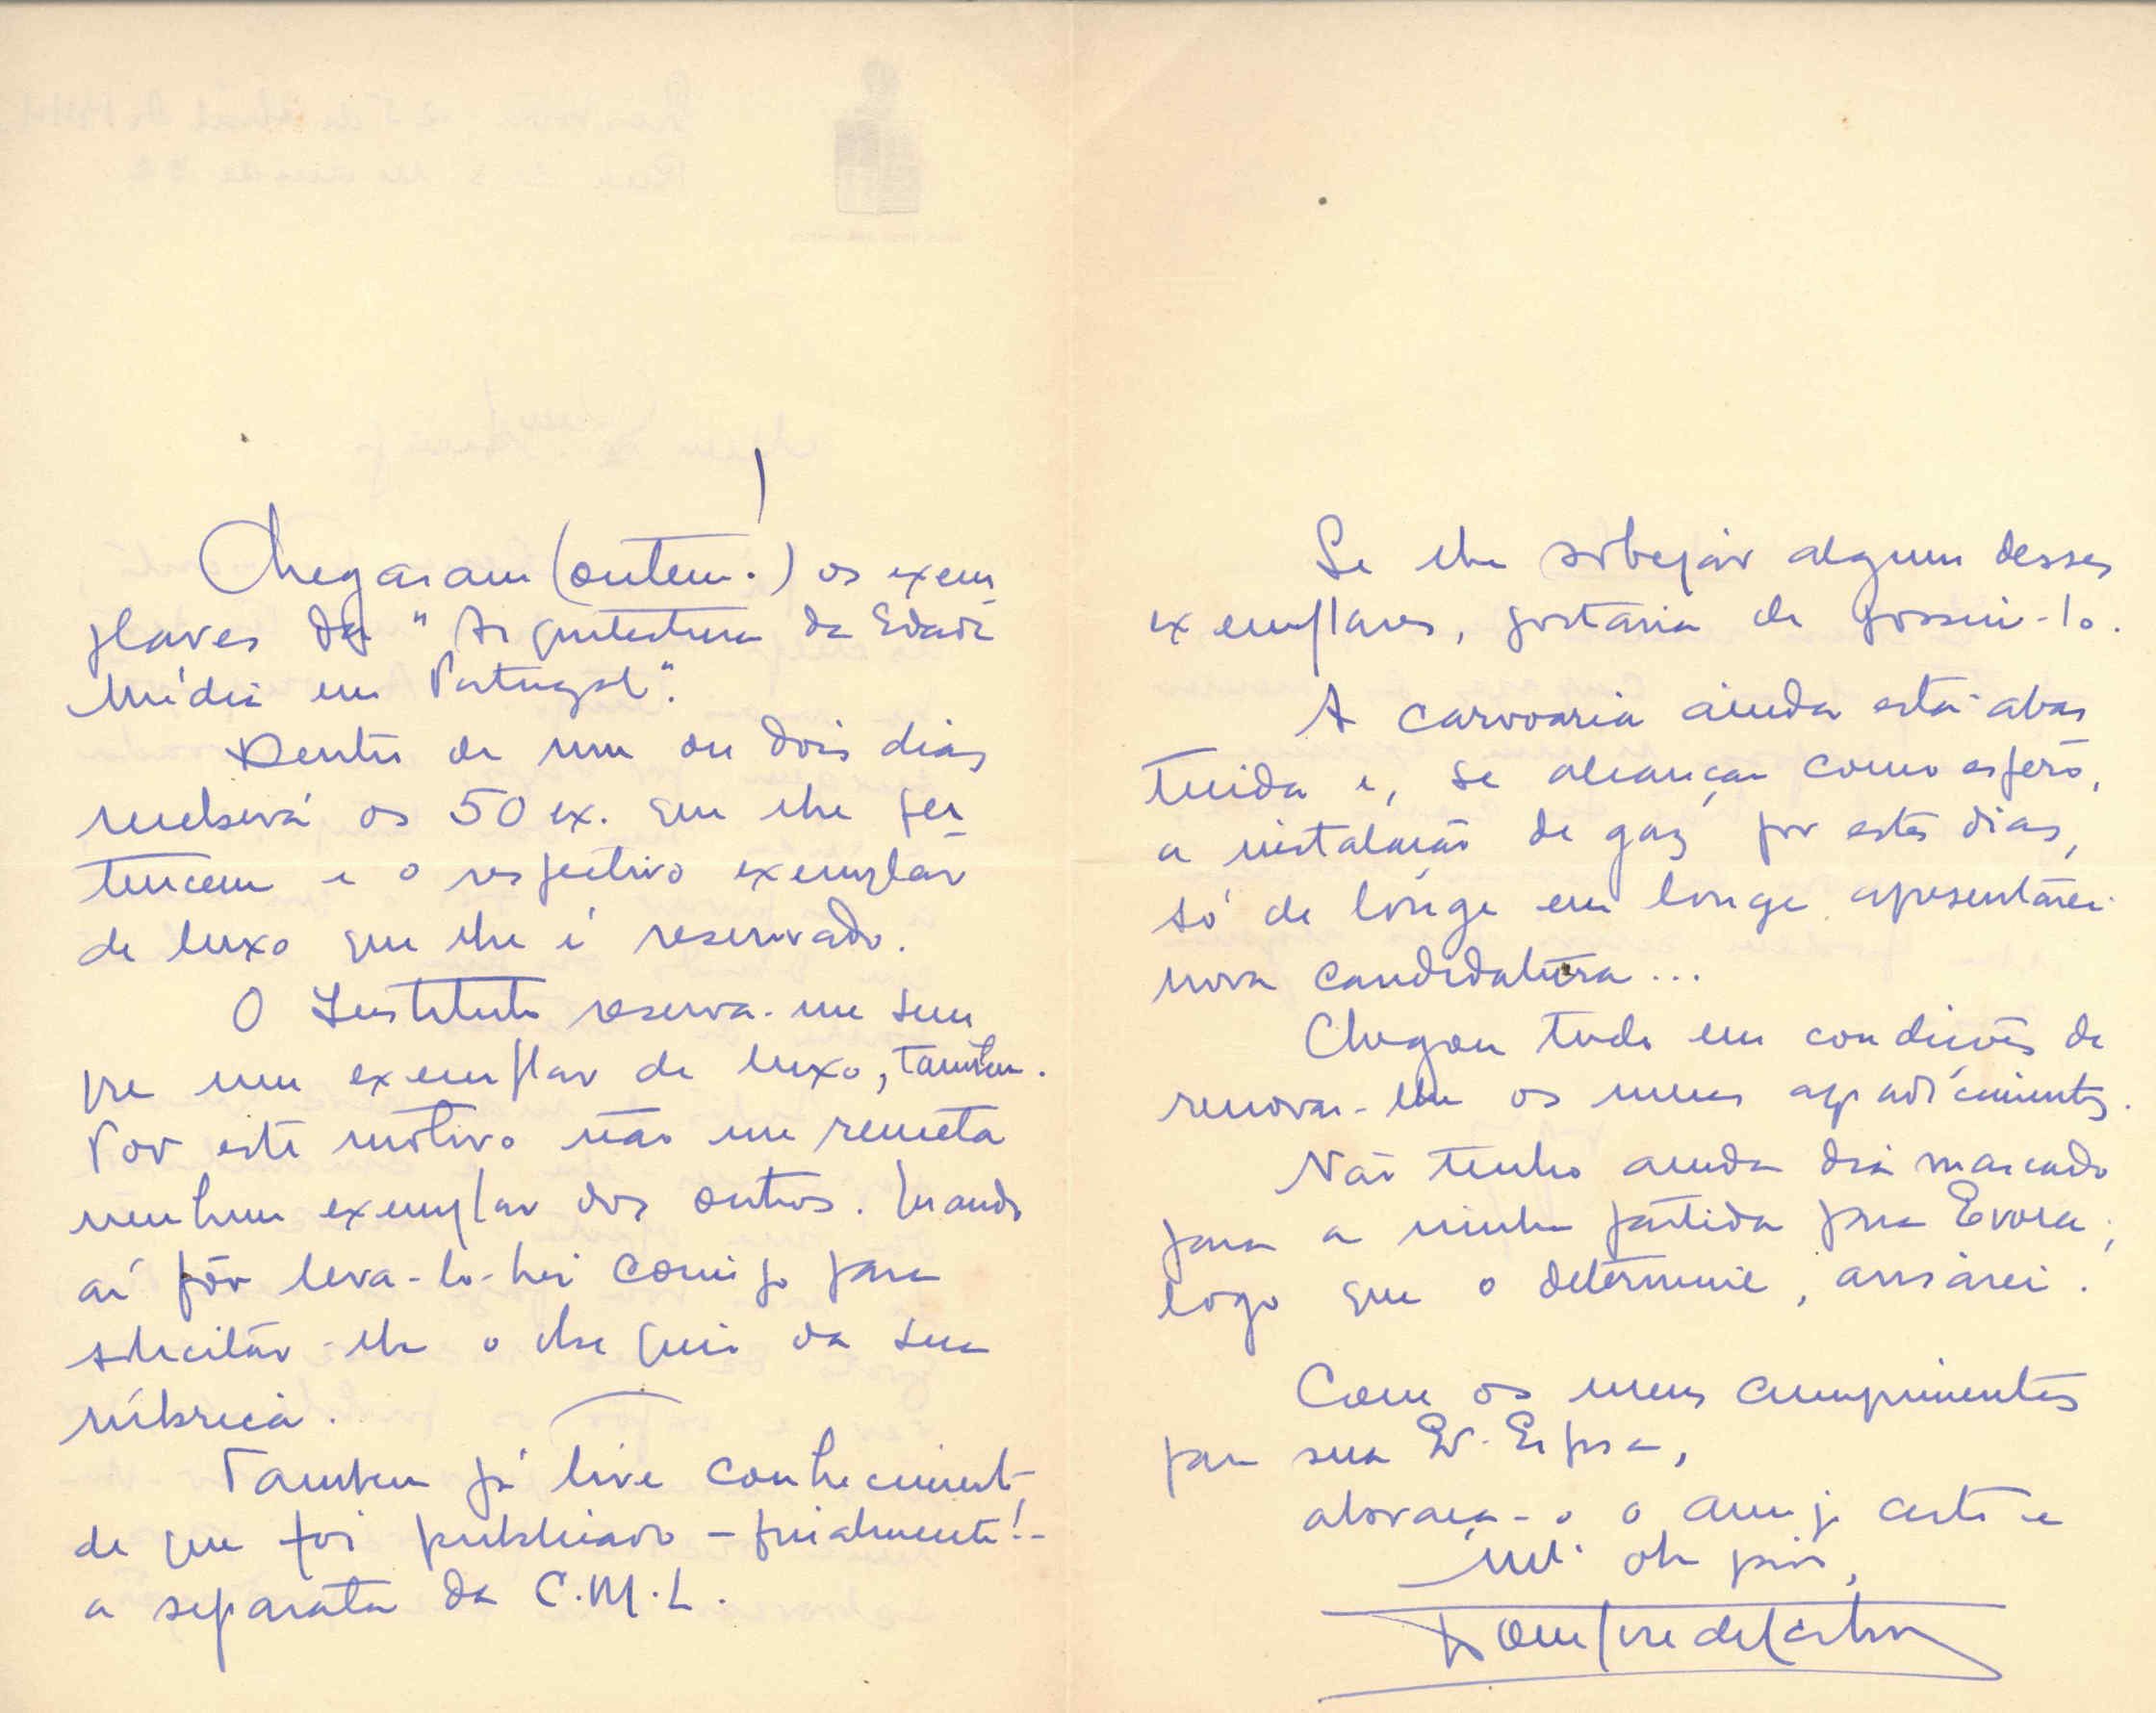 Chegaram (ontem!) os exem-
plares da "Arquitectura da Edade
Média em Portugal".
Dentro de um ou dois dias
receberá os 50 ex. que lhe per-
tencem e o respectivo exemplar
de luxo que lhe é reservado.
O Instituto reserva-me sem
pre um exemplar de luxo, tambem.
Por este motivo não me remeta
nenhum exemplar dos outros. Quando
aí fôr leva-lo-hei comigo para
solicitar-lhe o obsequio da sua
rúbrica.
Tambem já tive conhecimento
de que foi publicado - finalmente! -
a separata da C.M.L.
Se lhe sobejar algum desses
exemplares, gostaria de possui-lo.
A carvoaria ainda está abas
tecida e, se alcançar como espero,
a instalação de gaz por estes dias,
só de longe em longe apresentarei
nova candidatura...
Chegou tudo em condições de
renovar-lhe os meus agradecimentos.
Não tenho ainda dia marcado
para a minha partida para Evora;
logo que o determine, avisarei.
Com os meus cumprimentos
para sua Ex. Esposa,
abraça-o o amigo certo e
mt. obrigado,